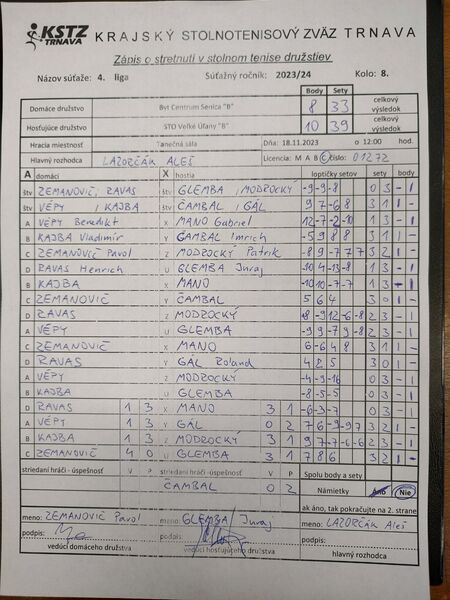 KSTZ TRNAVA KRAJSKÝ STOLNOTENISOVÝ ZVÄZ TRNAVA
Zápis o stretnutí v stolnom tenise družstiev
Názov súťaže: 4. liga Súťažný ročník: 2023/24 Kolo: 8.
Body Sety
Domáce družstvo Byt Centrum Senica "B" 8 33 celkový výsledok
Hosťujúce družstvo STO Veľké Úľany "B" 10 39 celkový výsledok
Hracia miestnosť Tanečná sála Dňa: 18.11.2023 o 12:00 hod.
Hlavný rozhodca LAZORČÁK ALEŠ Licencia: M A B C číslo: 01272
A domáci X hostia loptičky setov sety body
štv ZEMANOVIČ, RAVAS štv GLEMBA, MODROCKÝ -9 -9 -8 0 3 - 1
štv VÉPY, KAJBA štv ČAMBAL, GÁL 9 7 -6 8 3 1 1 -
A VÉPY Benedikt X MANO Gabriel -12 -7 2 -10 1 3 - 1
B KAJBA Vladimír Y ČAMBAL Imrich -5 9 8 8 3 1 1 -
C ZEMANOVIČ Pavol Z MODROCKÝ Patrik -8 9 -7 7 7 3 2 1 -
D RAVAS Henrich U GLEMBA Juraj -10 4 -13 -8 1 3 - 1
B KAJBA X MANO -10 10 -7 -7 1 3 - 1
C ZEMANOVIČ Y ČAMBAL 5 6 4 3 0 1 -
D RAVAS Z MODROCKÝ 8 -9 12 -6 -8 2 3 - 1
A VÉPY U GLEMBA -9 9 -7 9 -8 2 3 - 1
C ZEMANOVIČ X MANO 6 -6 4 8 3 1 1 -
D RAVAS Y GÁL Roland 4 2 5 3 0 1 -
A VÉPY Z MODROCKÝ -4 -9 -16 0 3 - 1
B KAJBA U GLEMBA -8 -5 -5 0 3 - 1
D RAVAS 1 3 X MANO 3 1 -6 -3 -7 0 3 - 1
A VÉPY 1 3 Y GÁL 0 2 7 6 -9 -9 7 3 2 1 -
B KAJBA 1 3 Z MODROCKÝ 3 1 9 7 -7 -6 -6 2 3 - 1
C ZEMANOVIČ 4 0 U GLEMBA 3 1 7 8 6 3 2 1 -
striedaní hráči - úspešnosť V P striedaní hráči - úspešnosť V P Spolu body a sety
ČAMBAL 0 2 Námietky Áno Nie
ak áno, tak pokračujte na 2. strane
meno: ZEMANOVIČ Pavol meno: GLEMBA Juraj meno: LAZORČÁK Aleš
podpis: podpis: podpis:
vedúci domáceho družstva vedúci hosťujúceho družstva hlavný rozhodca